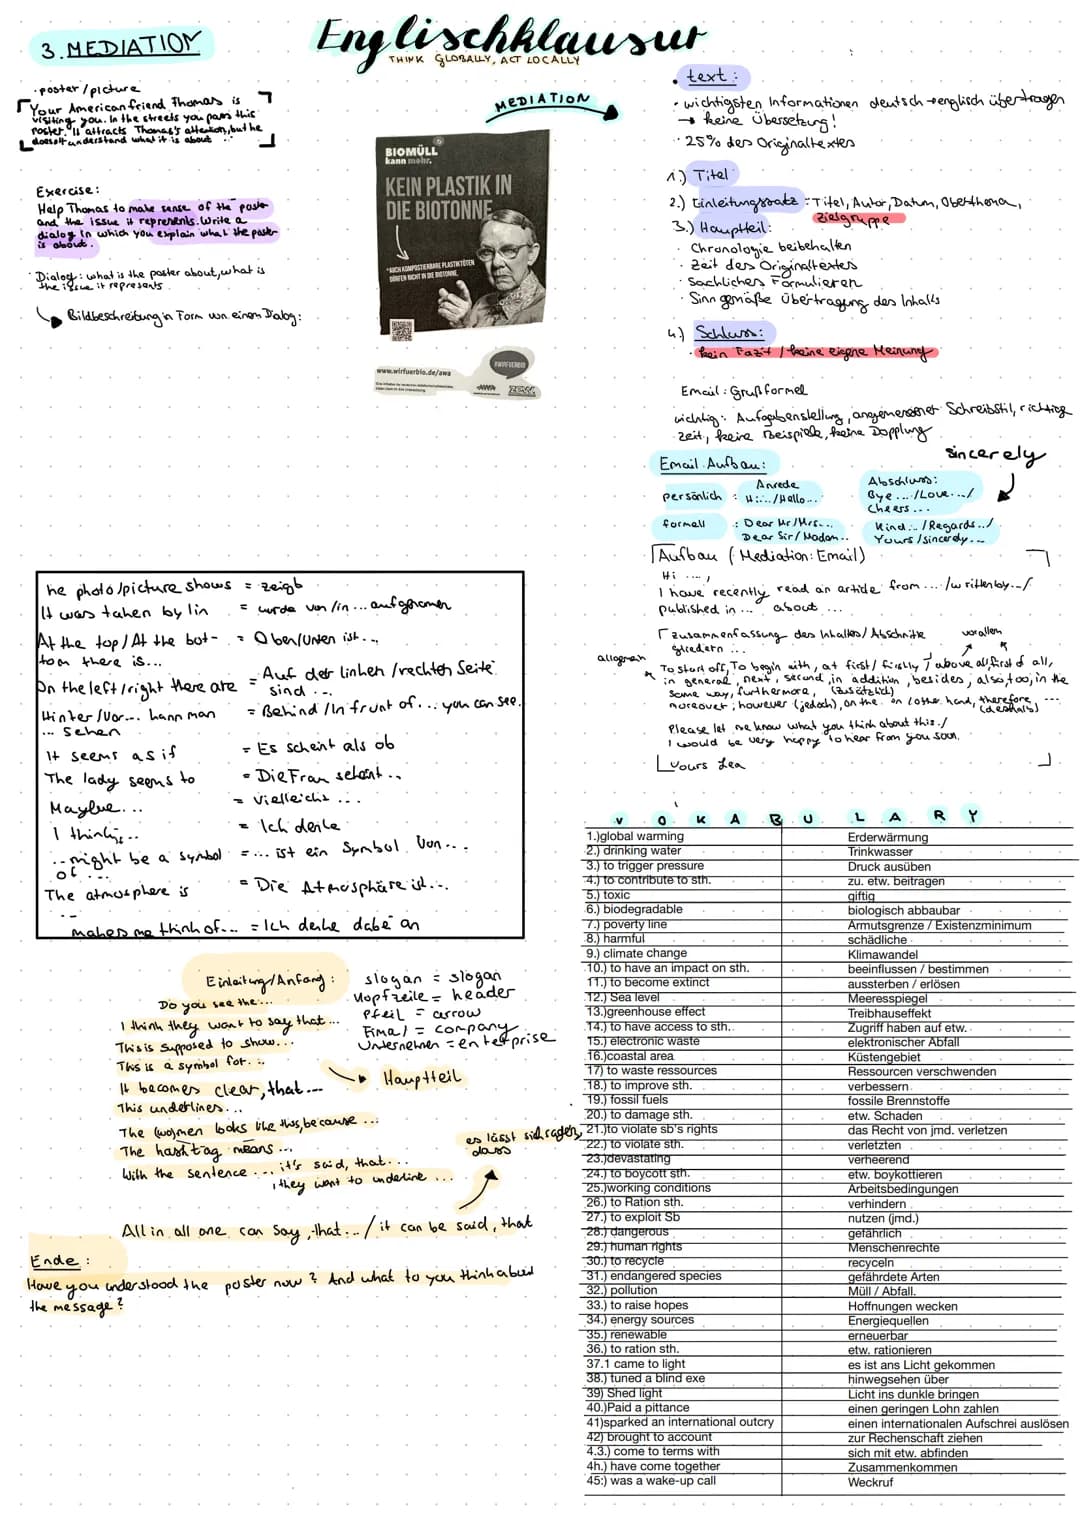 3. MEDIATION
Englischklausur
THINK GLOBALLY, ACT LOCALLY
• poster / picture
Your American friend Thomas is
visiting you. In the streets you pass this
poster. It attracts Thomas's attention, but he
doesn't understand what it is about
Exercise:
Help Thomas to make sense of the poster
and the issue it represents. Write a
dialog in which you explain what the poster
is about.
Dialog: what is the poster about, what is
the issue it represents
Bildbeschreibung in Form von einem Dialog:
MEDIATION
BIOMÜLL
kann mehr.
KEIN PLASTIK IN
DIE BIOTONNE
*AUCH KOMPOSTIERBARE PLASTIKTÜTEN
DÜRFEN NICHT IN DIE BIOTONNE.
#WIRFUERBIO
www.wirfuerbio.de/awa
AWA
• text:
• wichtigsten Informationen deutsch → englisch übertragen
→ keine Übersetzung!
• 25% des Originaltextes
1.) Titel
2.) Einleitungssatz: Titel, Autor, Datum, Oberthema,
Zielgruppe
3.) Hauptteil:
• Chronologie beibehalten
• Zeit des Originaltextes
• Sachliches Formulieren
• Sinn gemäße Übertragung des Inhalts
4.) Schluss:
• kein Fazit / keine eigene Meinung
Email: Grußformel
wichtig: Aufgabenstellung, angemessener Schreibstil, richtige
Zeit, keine Beispiele, keine Dopplung
sincerely
Email Aufbau:
persönlich : Anrede
Hi... / Hallo...
Abschluss:
Bye ... / Love... /
Cheers ...
formell : Dear Mr / Mrs...
Dear Sir / Madam..
Kind... / Regards.. /
Yours / sincerely...
Aufbau (Mediation: Email)
Hi ....,
I have recently read an article from .... / written by... /
published in ... about ...
zusammenfassung des Inhaltes / Abschnitte
gliedern ...
vor allem
allgemein
To start off, To begin with, at first / firstly, above all, first of all,
in general, next, second, in addition, besides, also, too, in the
same way, furthermore, (zusätzlich)
moreover, however (jedoch), on the on / other hand, therefore, ...
(deshalb)
Please let me know what you think about this. /
I would be very happy to hear from you soon.
Yours Lea
he photo / picture shows = zeigt
It was taken by / in = wurde von / in ... aufgenommen
At the top / At the bot- = Oben / Unten ist...
tom there is...
On the left / right there are = Auf der linken / rechten Seite
sind ...
Hinter / Vor... kann man = Behind / In front of... you can see.
... sehen
It seems as if = Es scheint als ob
The lady seems to = Die Frau scheint ..
Maybe... = Vielleicht ...
I think... = Ich denke
... might be a symbol = ... ist ein Symbol von...
of ...
The atmosphere is = Die Atmosphäre ist...
...
makes me think of... = Ich denke dabei an
Einleitung / Anfang:
Do you see the...
I think they want to say that ...
This is supposed to show...
This is a symbol for...
It becomes clear, that...
This underlines...
The (wo)men looks like this, because ...
The hashtag means ...
With the sentence ... it's said, that...
, they want to underline ...
slogan = slogan
Kopfzeile = header
Pfeil = arrow
Firma = company
Unternehmen = enterprise
Hauptteil
es lässt sich sagen,
dass
All in all one can say, that... / it can be said, that
Ende:
Have you understood the poster now? And what to you think about
the message?
VOKABULARY
1.)global warming Erderwärmung
2.) drinking water Trinkwasser
3.) to trigger pressure Druck ausüben
4.) to contribute to sth. zu. etw. beitragen
5.) toxic giftig
6.) biodegradable biologisch abbaubar
7.) poverty line Armutsgrenze / Existenzminimum
8.) harmful schädliche
9.) climate change Klimawandel
10.) to have an impact on sth. beeinflussen / bestimmen
11.) to become extinct aussterben / erlösen
12.) Sea level Meeresspiegel
13.)greenhouse effect Treibhauseffekt
14.) to have access to sth. Zugriff haben auf etw.
15.) electronic waste elektronischer Abfall
16.)coastal area Küstengebiet
17) to waste ressources Ressourcen verschwenden
18.) to improve sth. verbessern
19.) fossil fuels fossile Brennstoffe
20.) to damage sth. etw. Schaden
21.)to violate sb's rights das Recht von jmd. verletzen
22.) to violate sth. verletzten
23.)devastating verheerend
24.) to boycott sth. etw. boykottieren
25.)working conditions Arbeitsbedingungen
26.) to Ration sth. verhindern
27.) to exploit Sb nutzen (jmd.)
28.) dangerous gefährlich
29.) human rights Menschenrechte
30.) to recycle recyceln
31.) endangered species gefährdete Arten
32.) pollution Müll / Abfall.
33.) to raise hopes Hoffnungen wecken
34.) energy sources Energiequellen
35.) renewable erneuerbar
36.) to ration sth. etw. rationieren
37.1 came to light es ist ans Licht gekommen
38.) tuned a blind exe hinwegsehen über
39) Shed light Licht ins dunkle bringen
40.)Paid a pittance einen geringen Lohn zahlen
41)sparked an international outcry einen internationalen Aufschrei auslösen
42) brought to account zur Rechenschaft ziehen
4.3.) come to terms with sich mit etw. abfinden
4h.) have come together Zusammenkommen
45:) was a wake-up call Weckruf